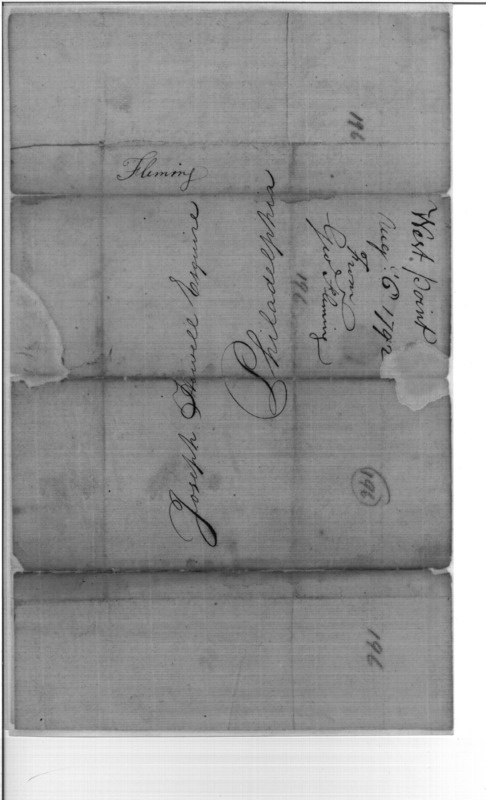 Fleming
Joseph Howell Esquire
Philadelphia
West point
Augt. 6 1792
from
Geo Fleming
196
196
196
196